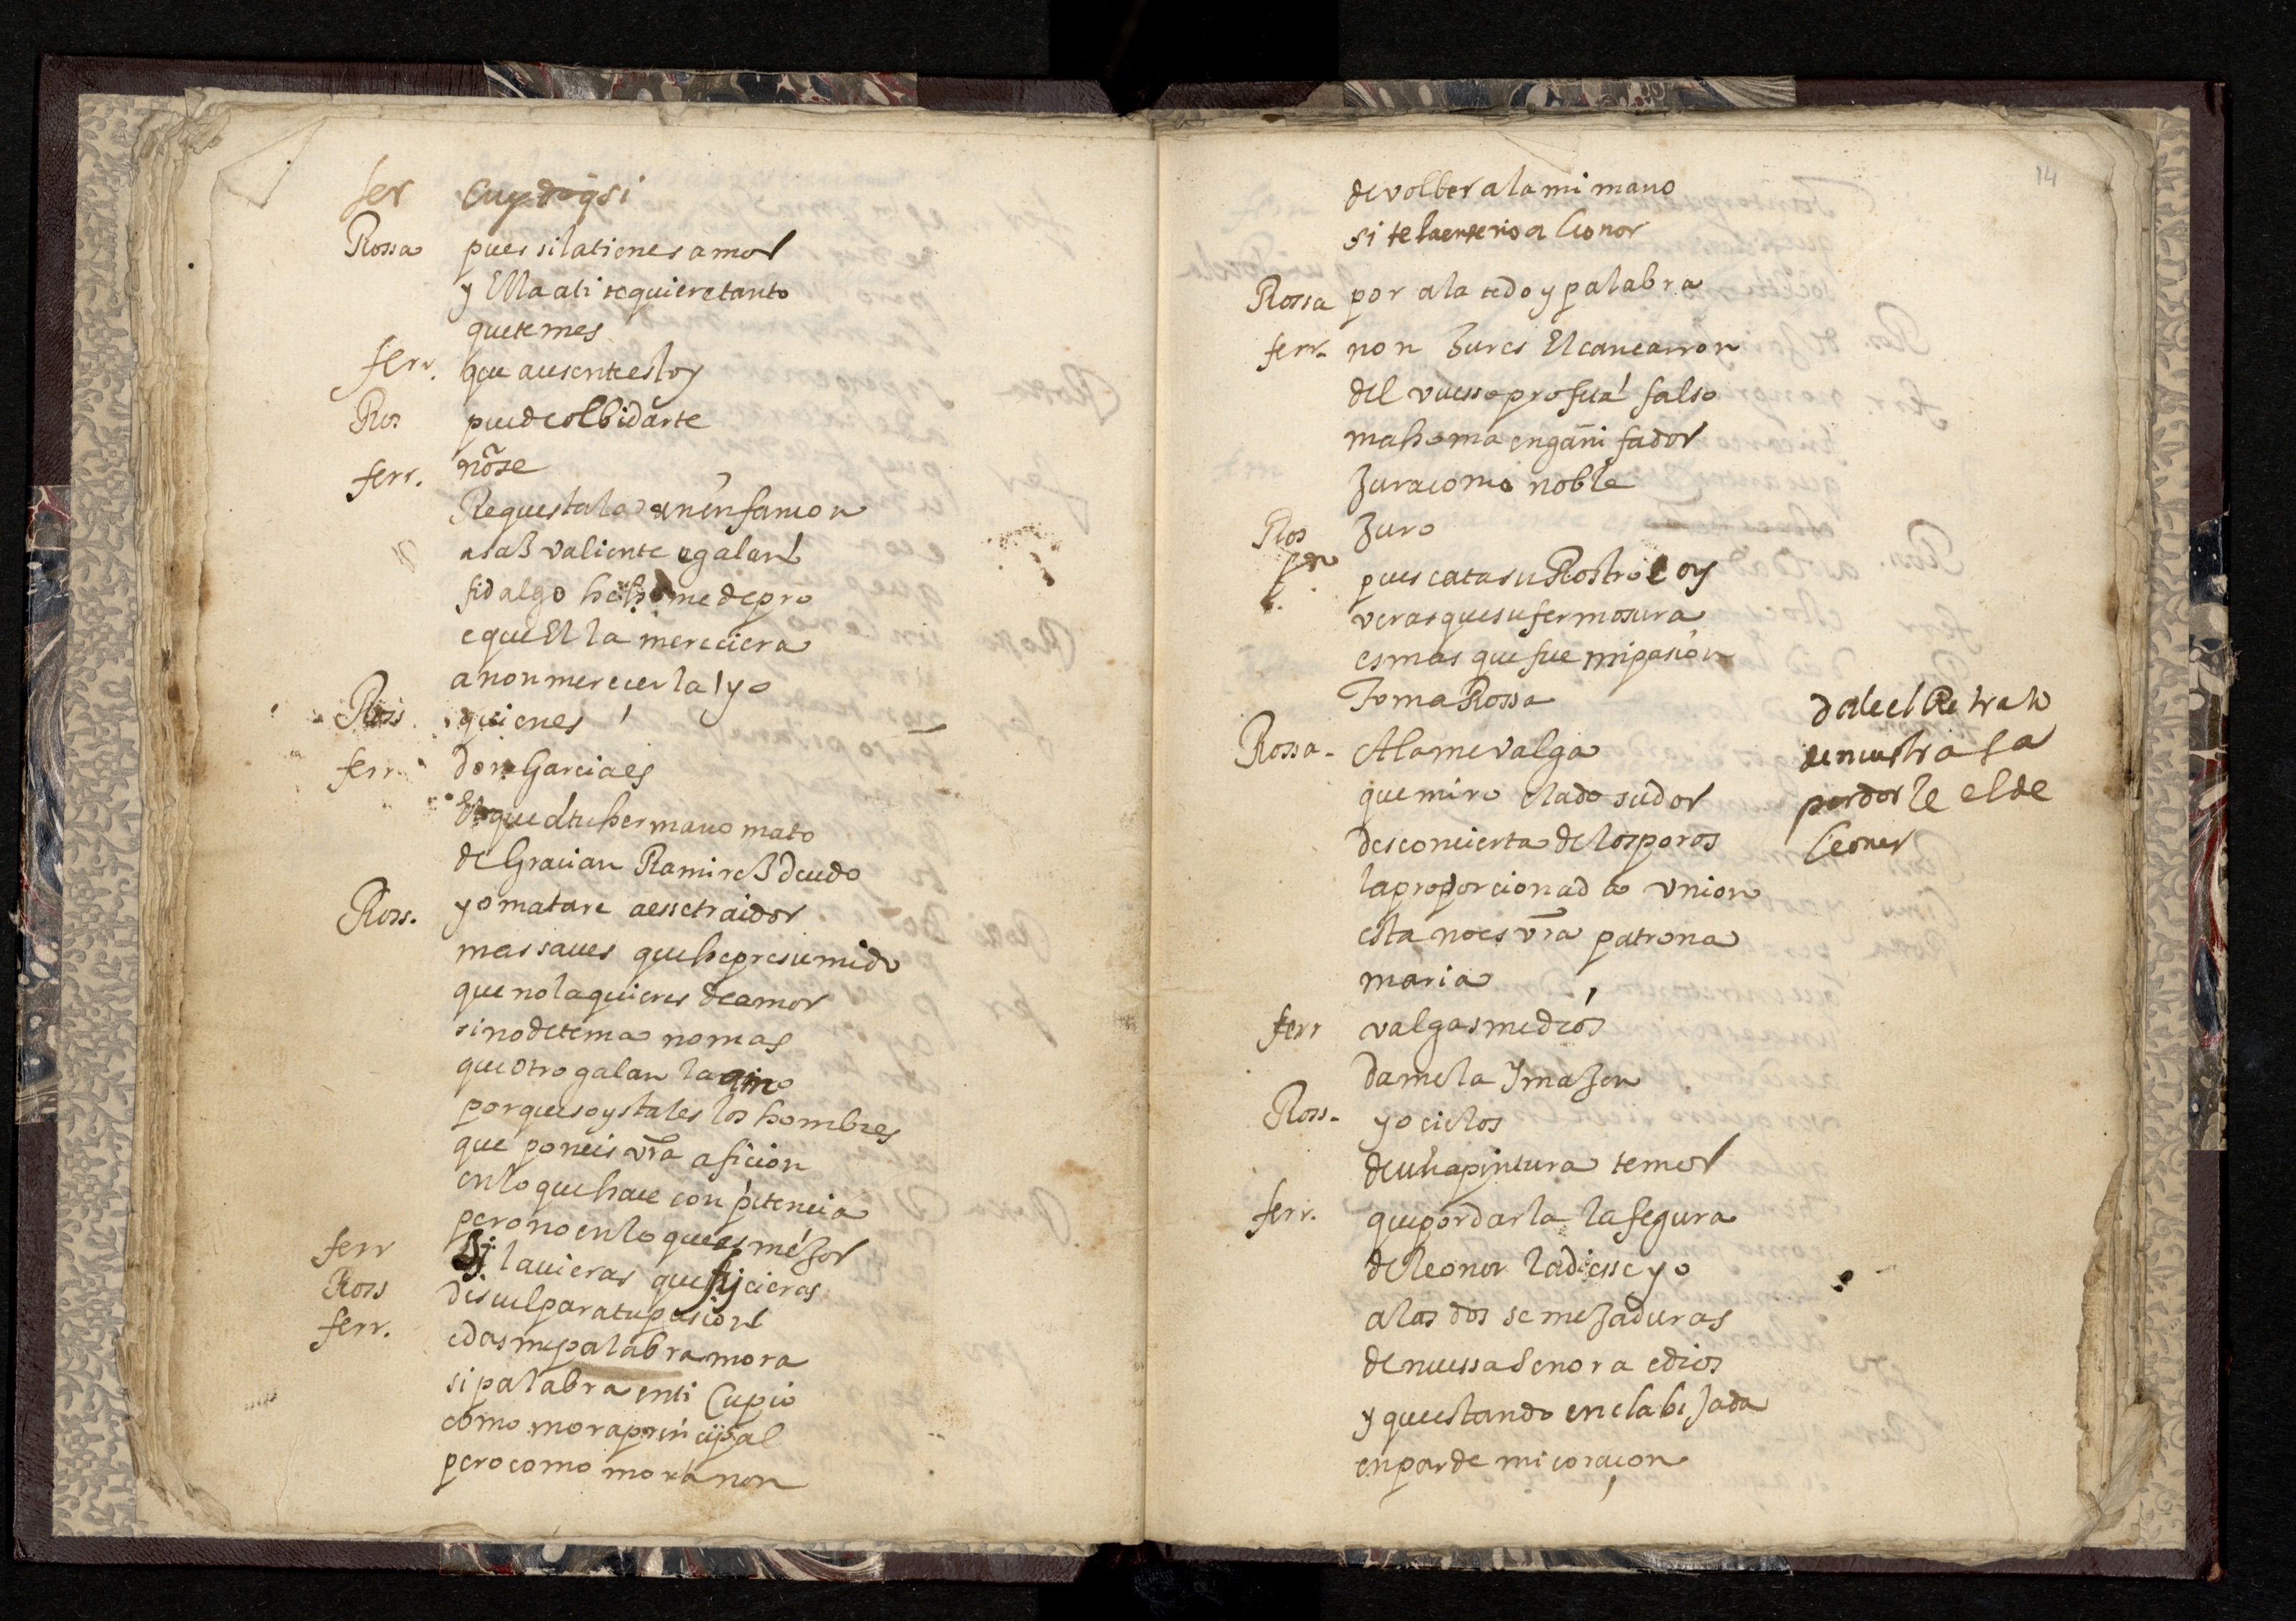 fer Cuydo q̃ si
Rossa pues si la tienes amor
y Ella a ti te quiere tanto
que temes
ferr. que ausente estoy
Ros puede olbidarte
ferr. nõ se
Requestala un ynfançon
asaz valiente e galan
fidalgo home de pro
e que El la mereciera
a non merecerla yo
Ross quien es
ferr don Garcia es
El que a tu hermano mato
de Gracian Ramirez deudo
Ross. yo matare a esse traidor
mas saues que he presumido
que no la quieres de amor
sino de tema no mas
que otro galan la
porque soys tales los hombres
que poneis vr̃a aficion
en lo que hace conpetencia
pero no en lo que es mejor
ferr Si la vieras que hicieras
Ross disculpara tu pasion
ferr. e dasme palabra mora
si palabra en ti Cupio
como mora principal
pero como mora non
14
de volber a la mi mano
si te la enseño a leonor
Rossa por ala te doy palabra
ferr. non Jures El cancarron
del vuesso profeta falso
mahoma engañifador
Jura como noble
Ros Juro
fer pues cata su Rostro e oy
veras que su fermosura
es mas que fue mi pasion
Toma Rossa
dale el Retrato
de nuestra sa
por dorle el de
leonor
Rossa- Ala me valga
que miro elado sudor
desconcierta de los poros
la proporcionada vnion
esta no es vr̃a patrona
maria
ferr valgasme dios
dame la Ymajen
Ross- yo cielos
de una pintura temor
ferr. que por dar la la fegura
de leonor la diesse yo
a las dos semejaduras
de nuessa Senora e dios
y que estando enclabijada
en par de mi coraçon